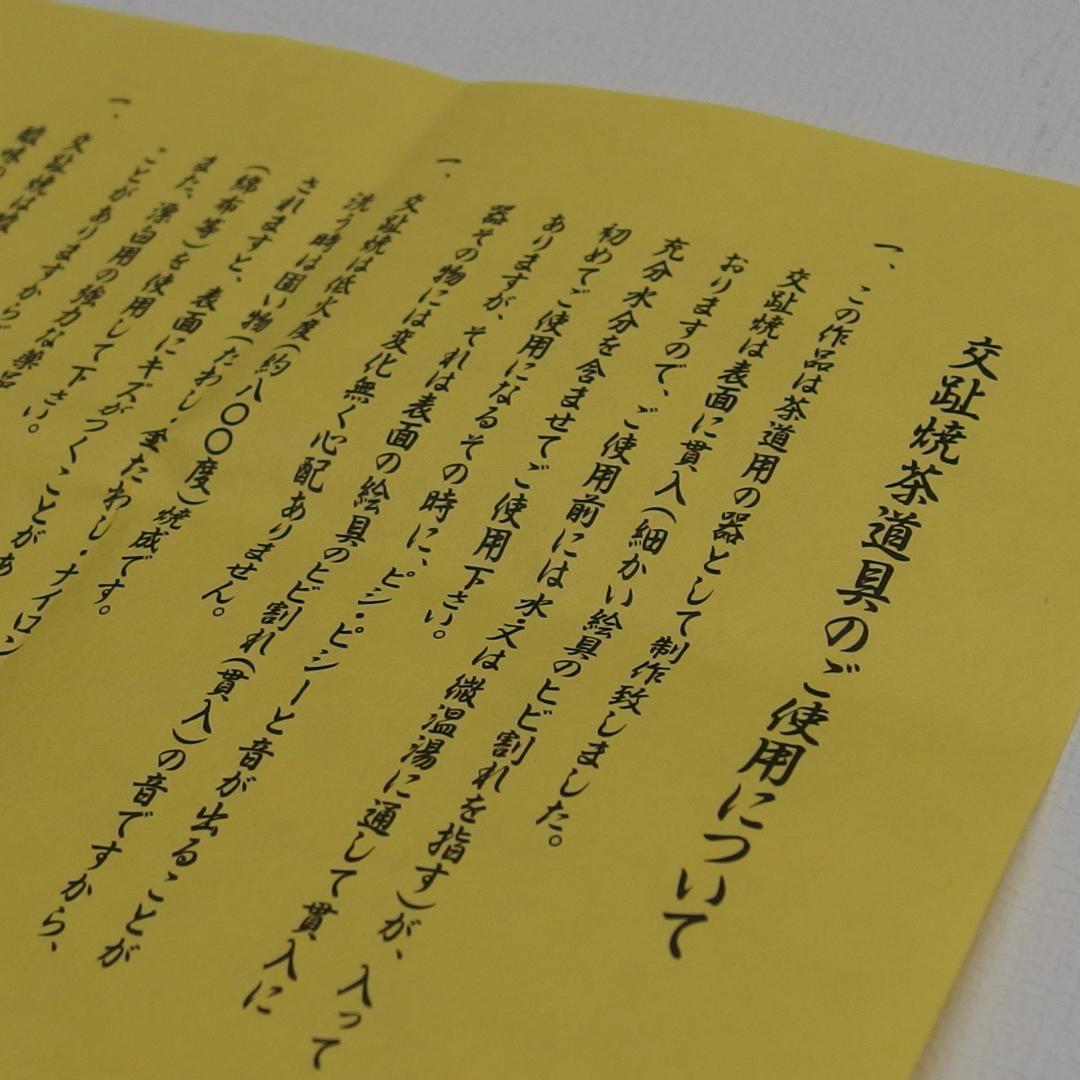 交趾焼茶道具のご使用について
一、この作品は茶道用の器として制作致しました。
交趾焼は表面に貫入(細かい絵具のヒビ割れを指す)が、入って
おりますので、ご使用前には水・又は微温湯に通して貫入に
充分水分を含ませてご使用下さい。
初めてご使用になるその時に、ピシ・ピシーと音が出ることが
ありますが、それは表面の絵具のヒビ割れ(貫入)の音ですから、
器その物には変化無く心配ありません。
一、交趾焼は低火度(約八〇〇度)焼成です。
洗う時は固い物(たわし・金たわし・ナイロン
されますと、表面にキズがつくことがあ
(綿布等)を使用して下さい。
また、漂白用の強力な薬品
ことがありますから
一、交趾焼は酸
酸味の